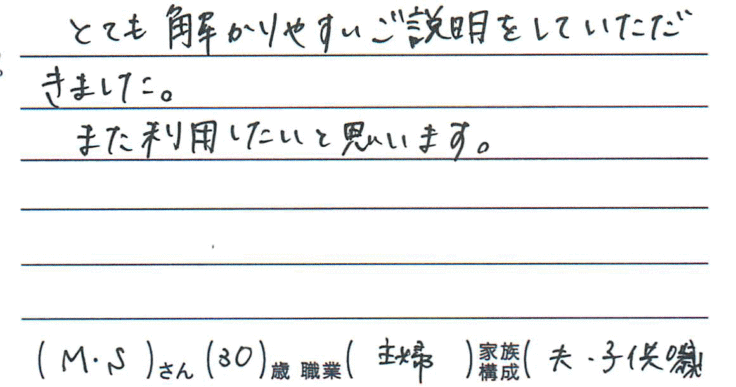 とても解かりやすいご説明をしていただ
きました。
また利用したいと思います。
(M・S)さん(30)歳 職業(主婦)家族構成(夫・子供